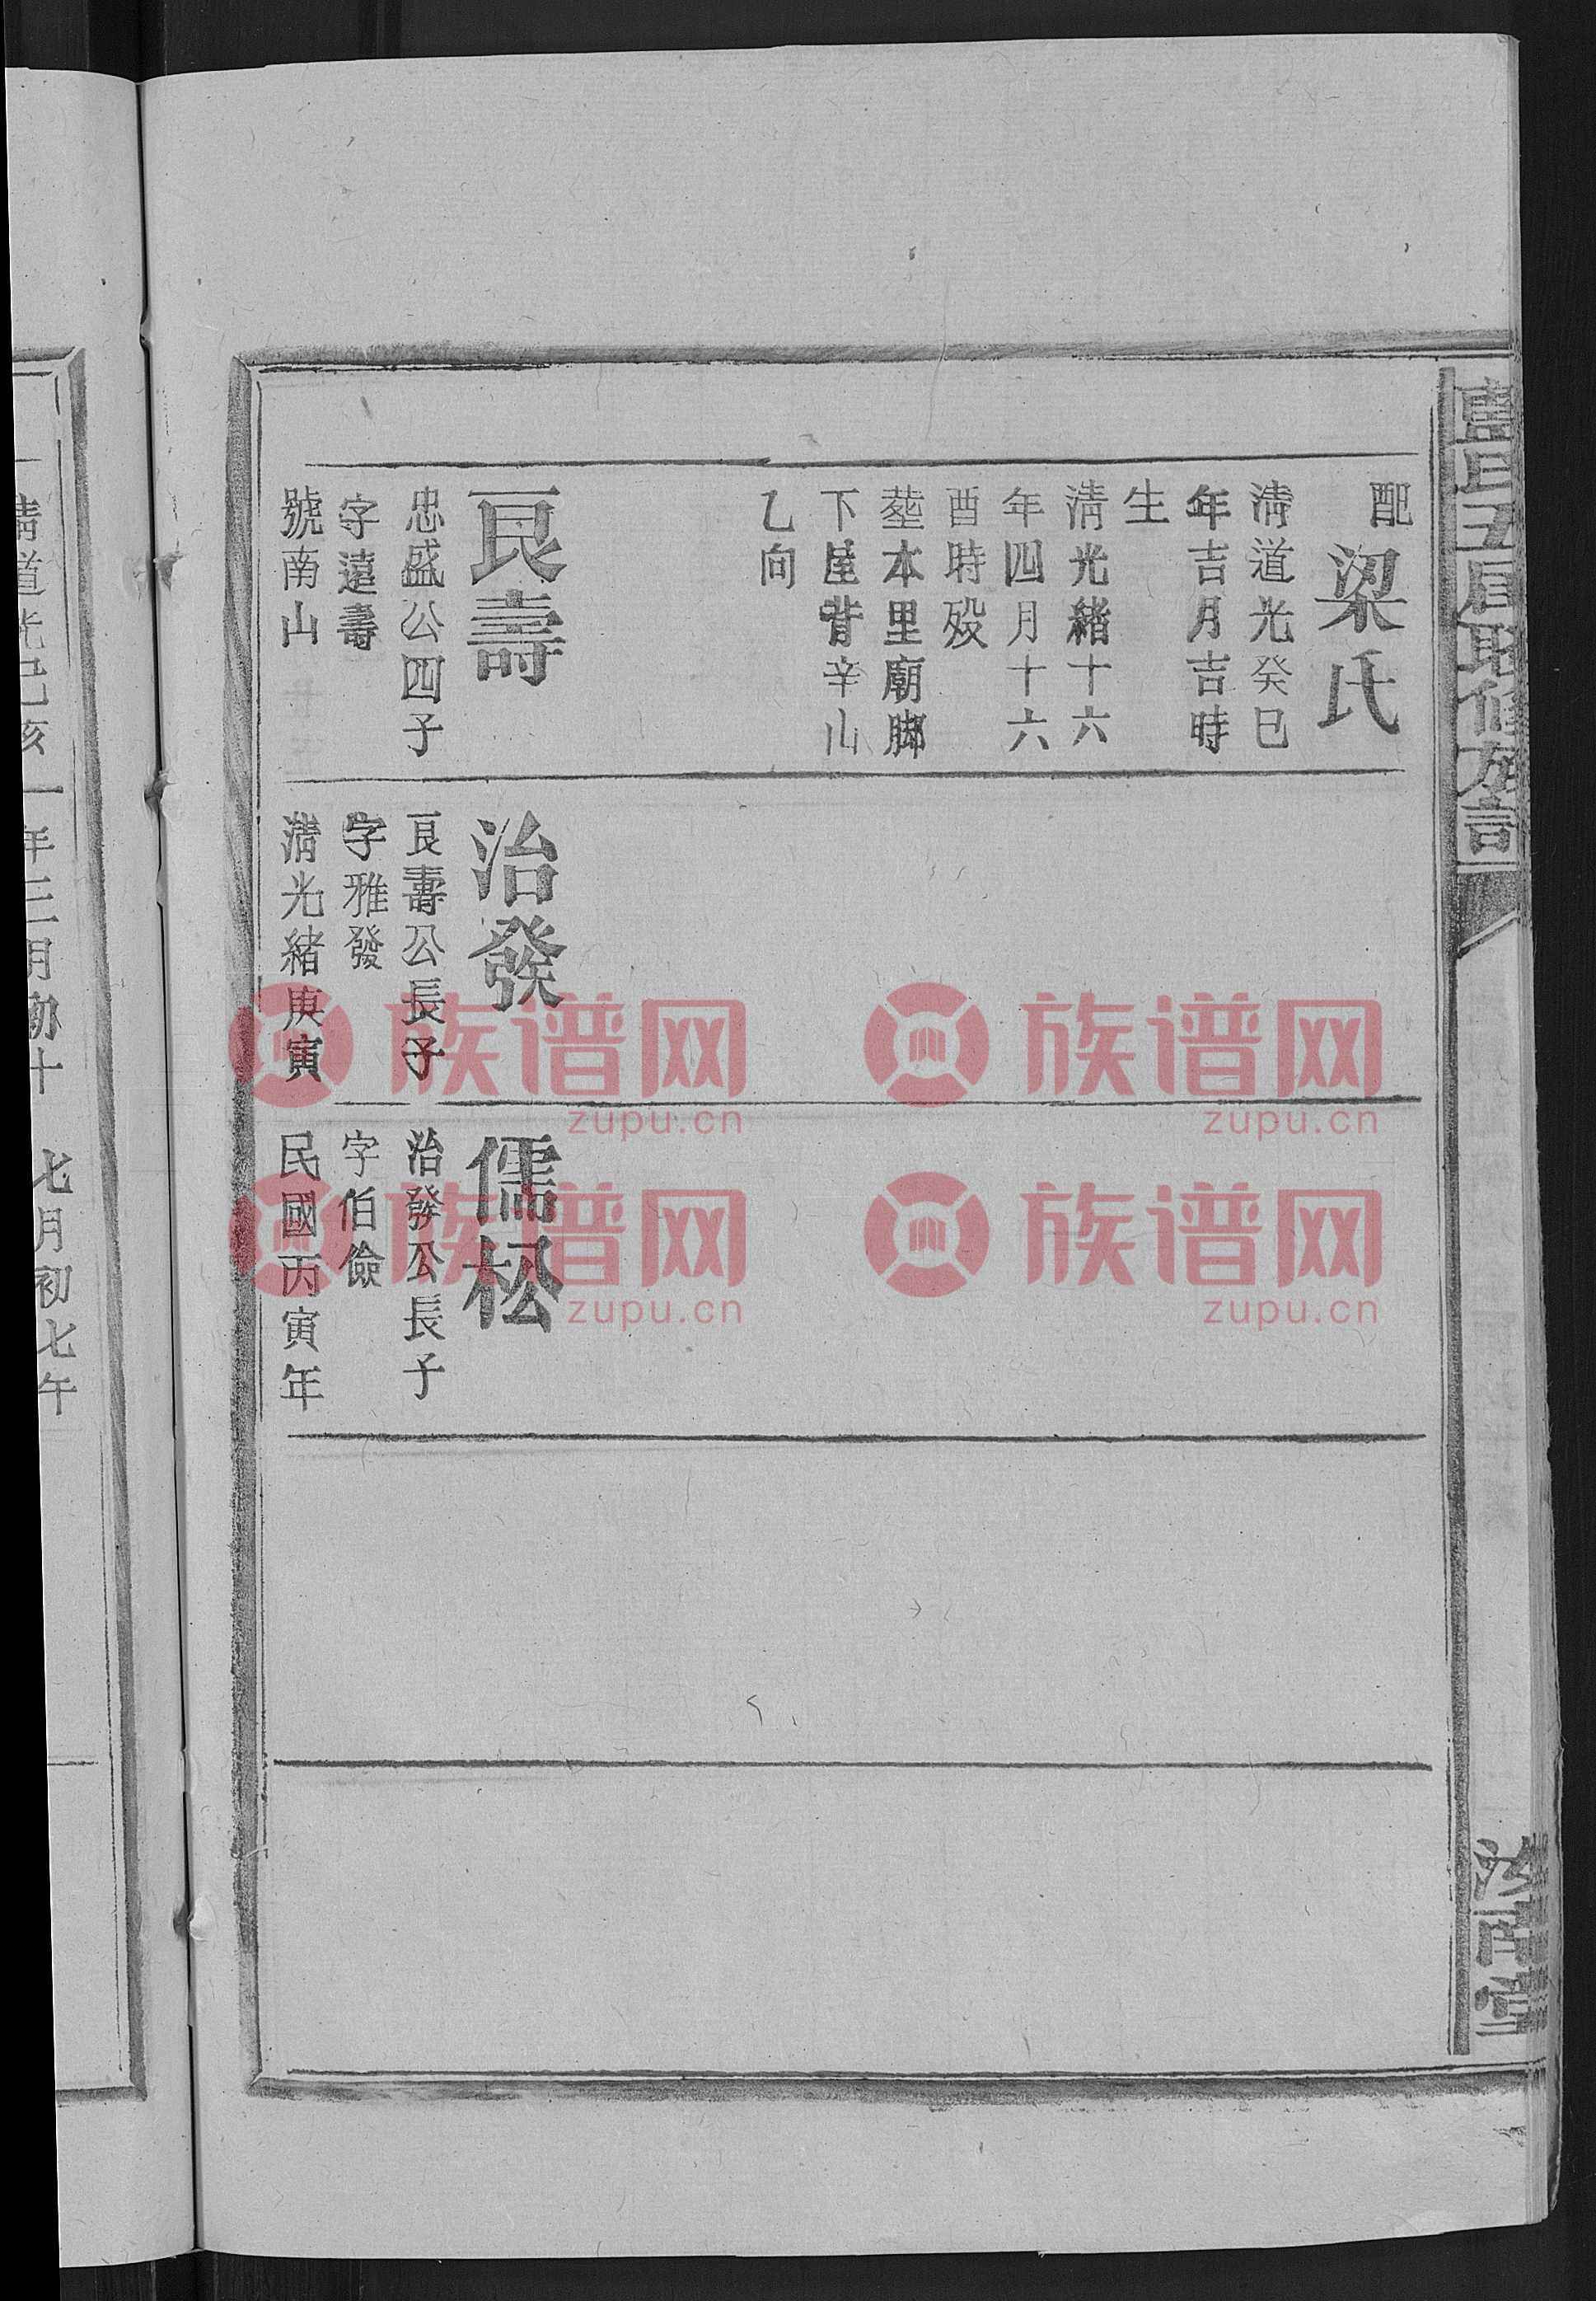 五届聯修族譜
堂
配
梁氏
清道光癸巳
年吉月吉時
生
清光緒十六
年四月十六
酉時殁
塟本里廟脚
下屋背辛山
乙向
良壽
忠盛公四子
字遠壽
號南山
治發
良壽公長子
字雅發
清光緒庚寅
儒松
治發公長子
字伯儉
民國丙寅年
清道光己亥
年三月初十
七月初七午
族谱网
zupu.cn
族谱网
zupu.cn
族谱网
zupu.cn
族谱网
zupu.cn